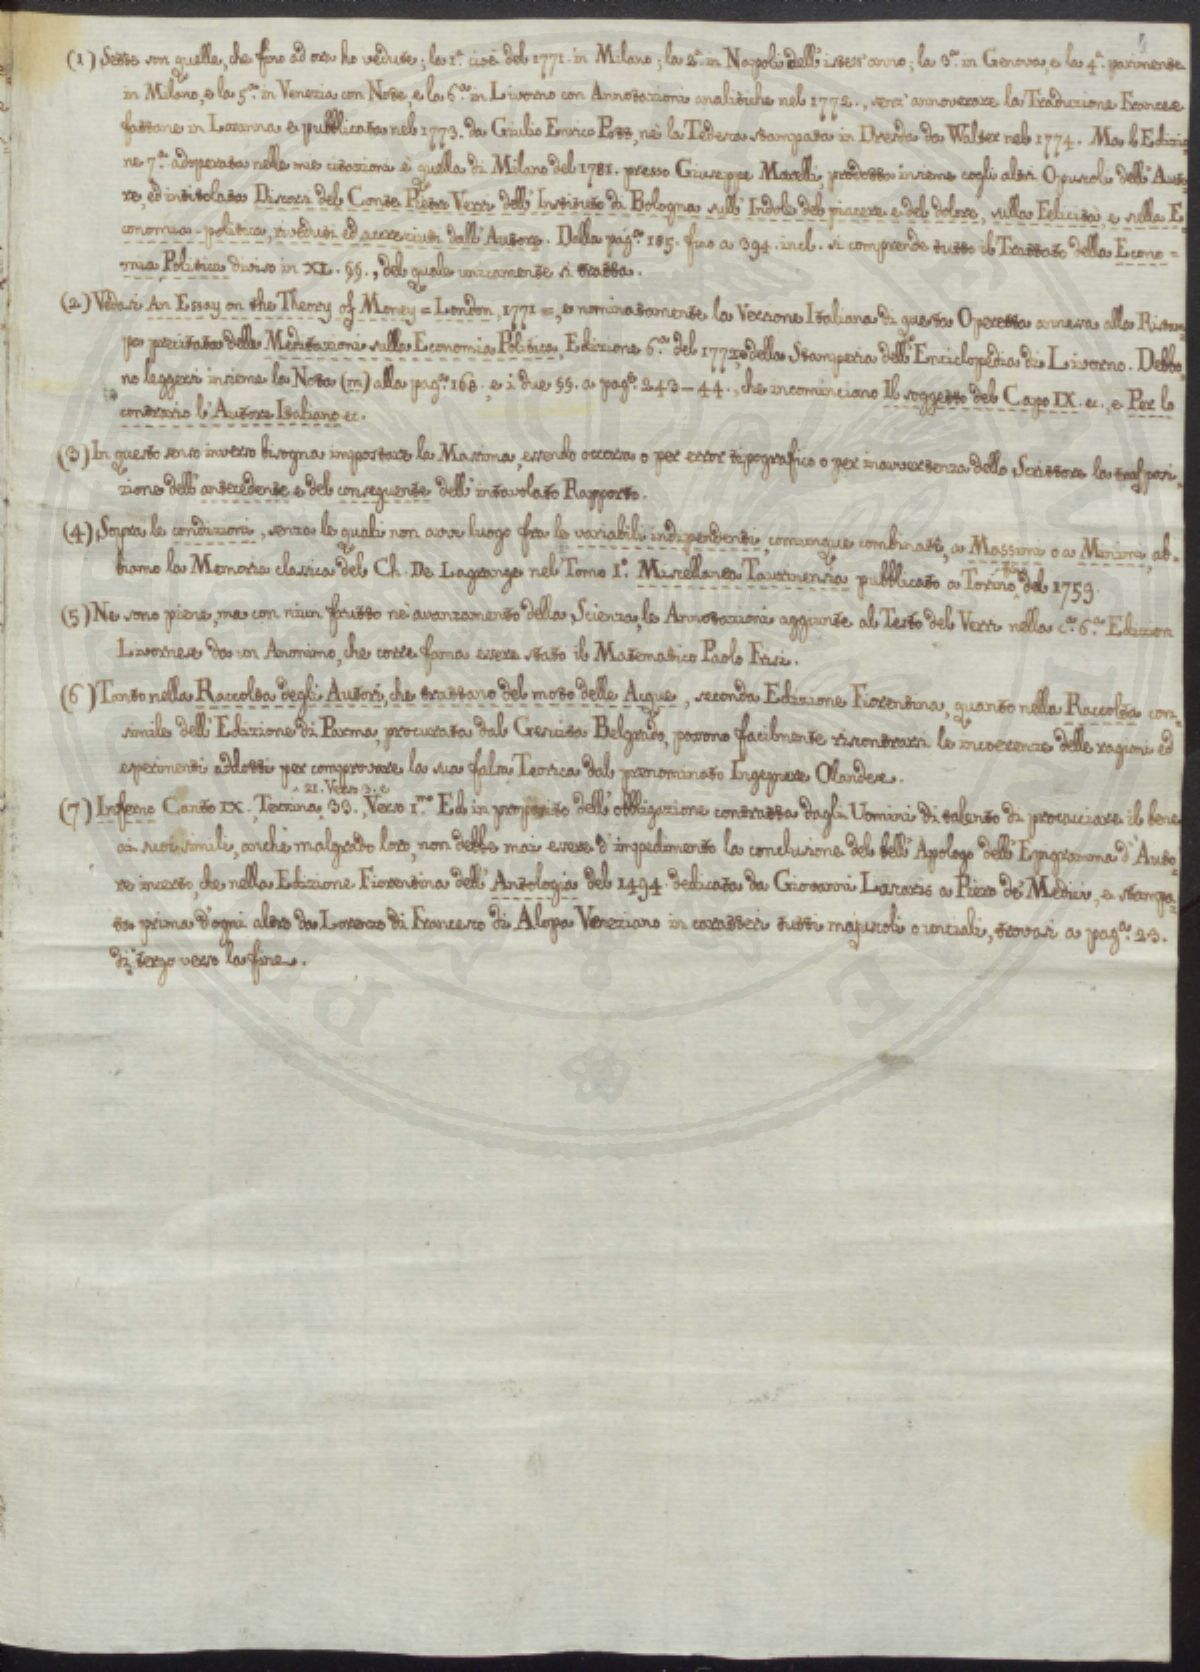 (1) Sette son quelle, che fino ad ora ho vedute; la 1.ª cioè del 1771. in Milano; la 2.ª in Napoli dell'istess'anno; la 3.ª in Genova, e la 4.ª parimente
in Milano, e la 5.ª in Venezia con Note, e la 6.ª in Livorno con Annotazioni analitiche nel 1772., senz'annoverare la Traduzione Francese
fattane in Lozanna e pubblicata nel 1773. da Giulio Enrico Pott, nè la Tedesca stampata in Dresda da Walter nel 1774. Ma l'Edizio=
ne 7.ª adoperata nelle mie citazioni è quella di Milano del 1781. presso Giuseppe Marelli, prodotta insieme cogli altri Opuscoli dell'Auto=
re, ed intitolata Discorsi del Conte Pietro Verri dell'Instituto di Bologna sull'Indole del piacere e del dolore, sulla Felicità e sulla E=
conomia politica, riveduti ed accresciuti dall'Autore. Dalla pag.ª 185. fino a 394. incl. si comprende tutto il Trattato della Econo=
mia Politica diviso in XL. §§., del quale unicamente si tratta.
(2) Vedasi An Essay on the Theory of Money = London, 1771 =, e nominatamente la Versione Italiana di questa Operetta annessa alla Ristam=
pa precitata delle Meditazioni sulla Economia Politica, Edizione 6.ª del 1772 della Stamperia dell'Enciclopedia di Livorno. Debbo=
no leggersi insieme la Nota (m) alla pag.ª 168. e i due §§. a pag.ª 243-44., che incominciano Il soggetto del Capo IX. ec., e Per lo
contrario l'Autore Italiano ec.
(3) In questo senso inverso bisogna impostare la Massima, essendo occorsa o per error tipografico o per inavvertenza dello Scrittore la trasposi=
zione dell'antecedente e del conseguente dell'intavolato Rapporto.
(4) Sopra le condizioni, senza le quali non avvi luogo fra le variabili indipendenti, comunque combinate, a Massimi o a Minimi, ab=
biamo la Memoria classica del Ch. De Lagrange nel Tomo I.º Miscellanea Taurinensia pubblicato a Torino del 1759.
(5) Ne sono piene, ma con niun frutto nè avanzamento della Scienza, le Annotazioni aggiunte al Testo del Verri nella c.ª 6.ª Edizion
Livornese da un Anonimo, che corre fama essere stato il Matematico Paolo Frisi.
(6) Tanto nella Raccolta degli Autori, che trattano del moto delle Acque, seconda Edizione Fiorentina, quanto nella Raccolta con=
simile dell'Edizione di Parma, procurata dal Gesuita Belgrado, possono facilmente riscontrarsi le incoerenze delle ragioni ed
esperimenti addotti per comprovare la sua falsa Teorica dal prenominato Ingegnere Olandese.
21. Verso 3. e
(7) Inferno Canto IX., Terzina 33., Verso 1.mo Ed in proposito dell'obbligazione contratta dagli Uomini di talento di procacciare il bene
ai suoi simili, anche malgrado loro, non debbe mai essere d'impedimento la conclusione del bell'Apologo dell'Epigramma d'Auto=
re incerto, che nella Edizione Fiorentina dell'Antologia del 1494. dedicata da Giovanni Lascaris a Piero de' Medici, e stampa=
ta prima d'ogni altro da Lorenzo di Francesco di Alopa Veneziano in caratteri tutti majuscoli o unciali, trovasi a pag.ª 23.
di tergo verso la fine.